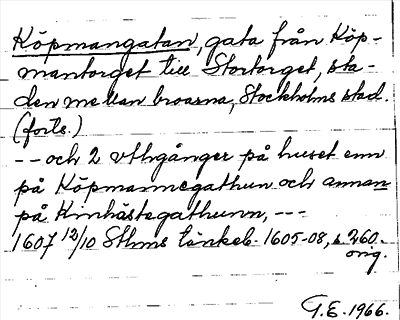 Köpmangatan, gata från Köp-
mantorget till Stortorget, sta-
den mellan broarna, Stockholms stad.
(forts.)
-- och 2 vthgånger på huset enn
på Köpmannegathun och annan
på Kinhästegathunn, ---
1607 12/10 Sthms tänkeb. 1605-08, s. 260.
orig.
G.E. 1966.